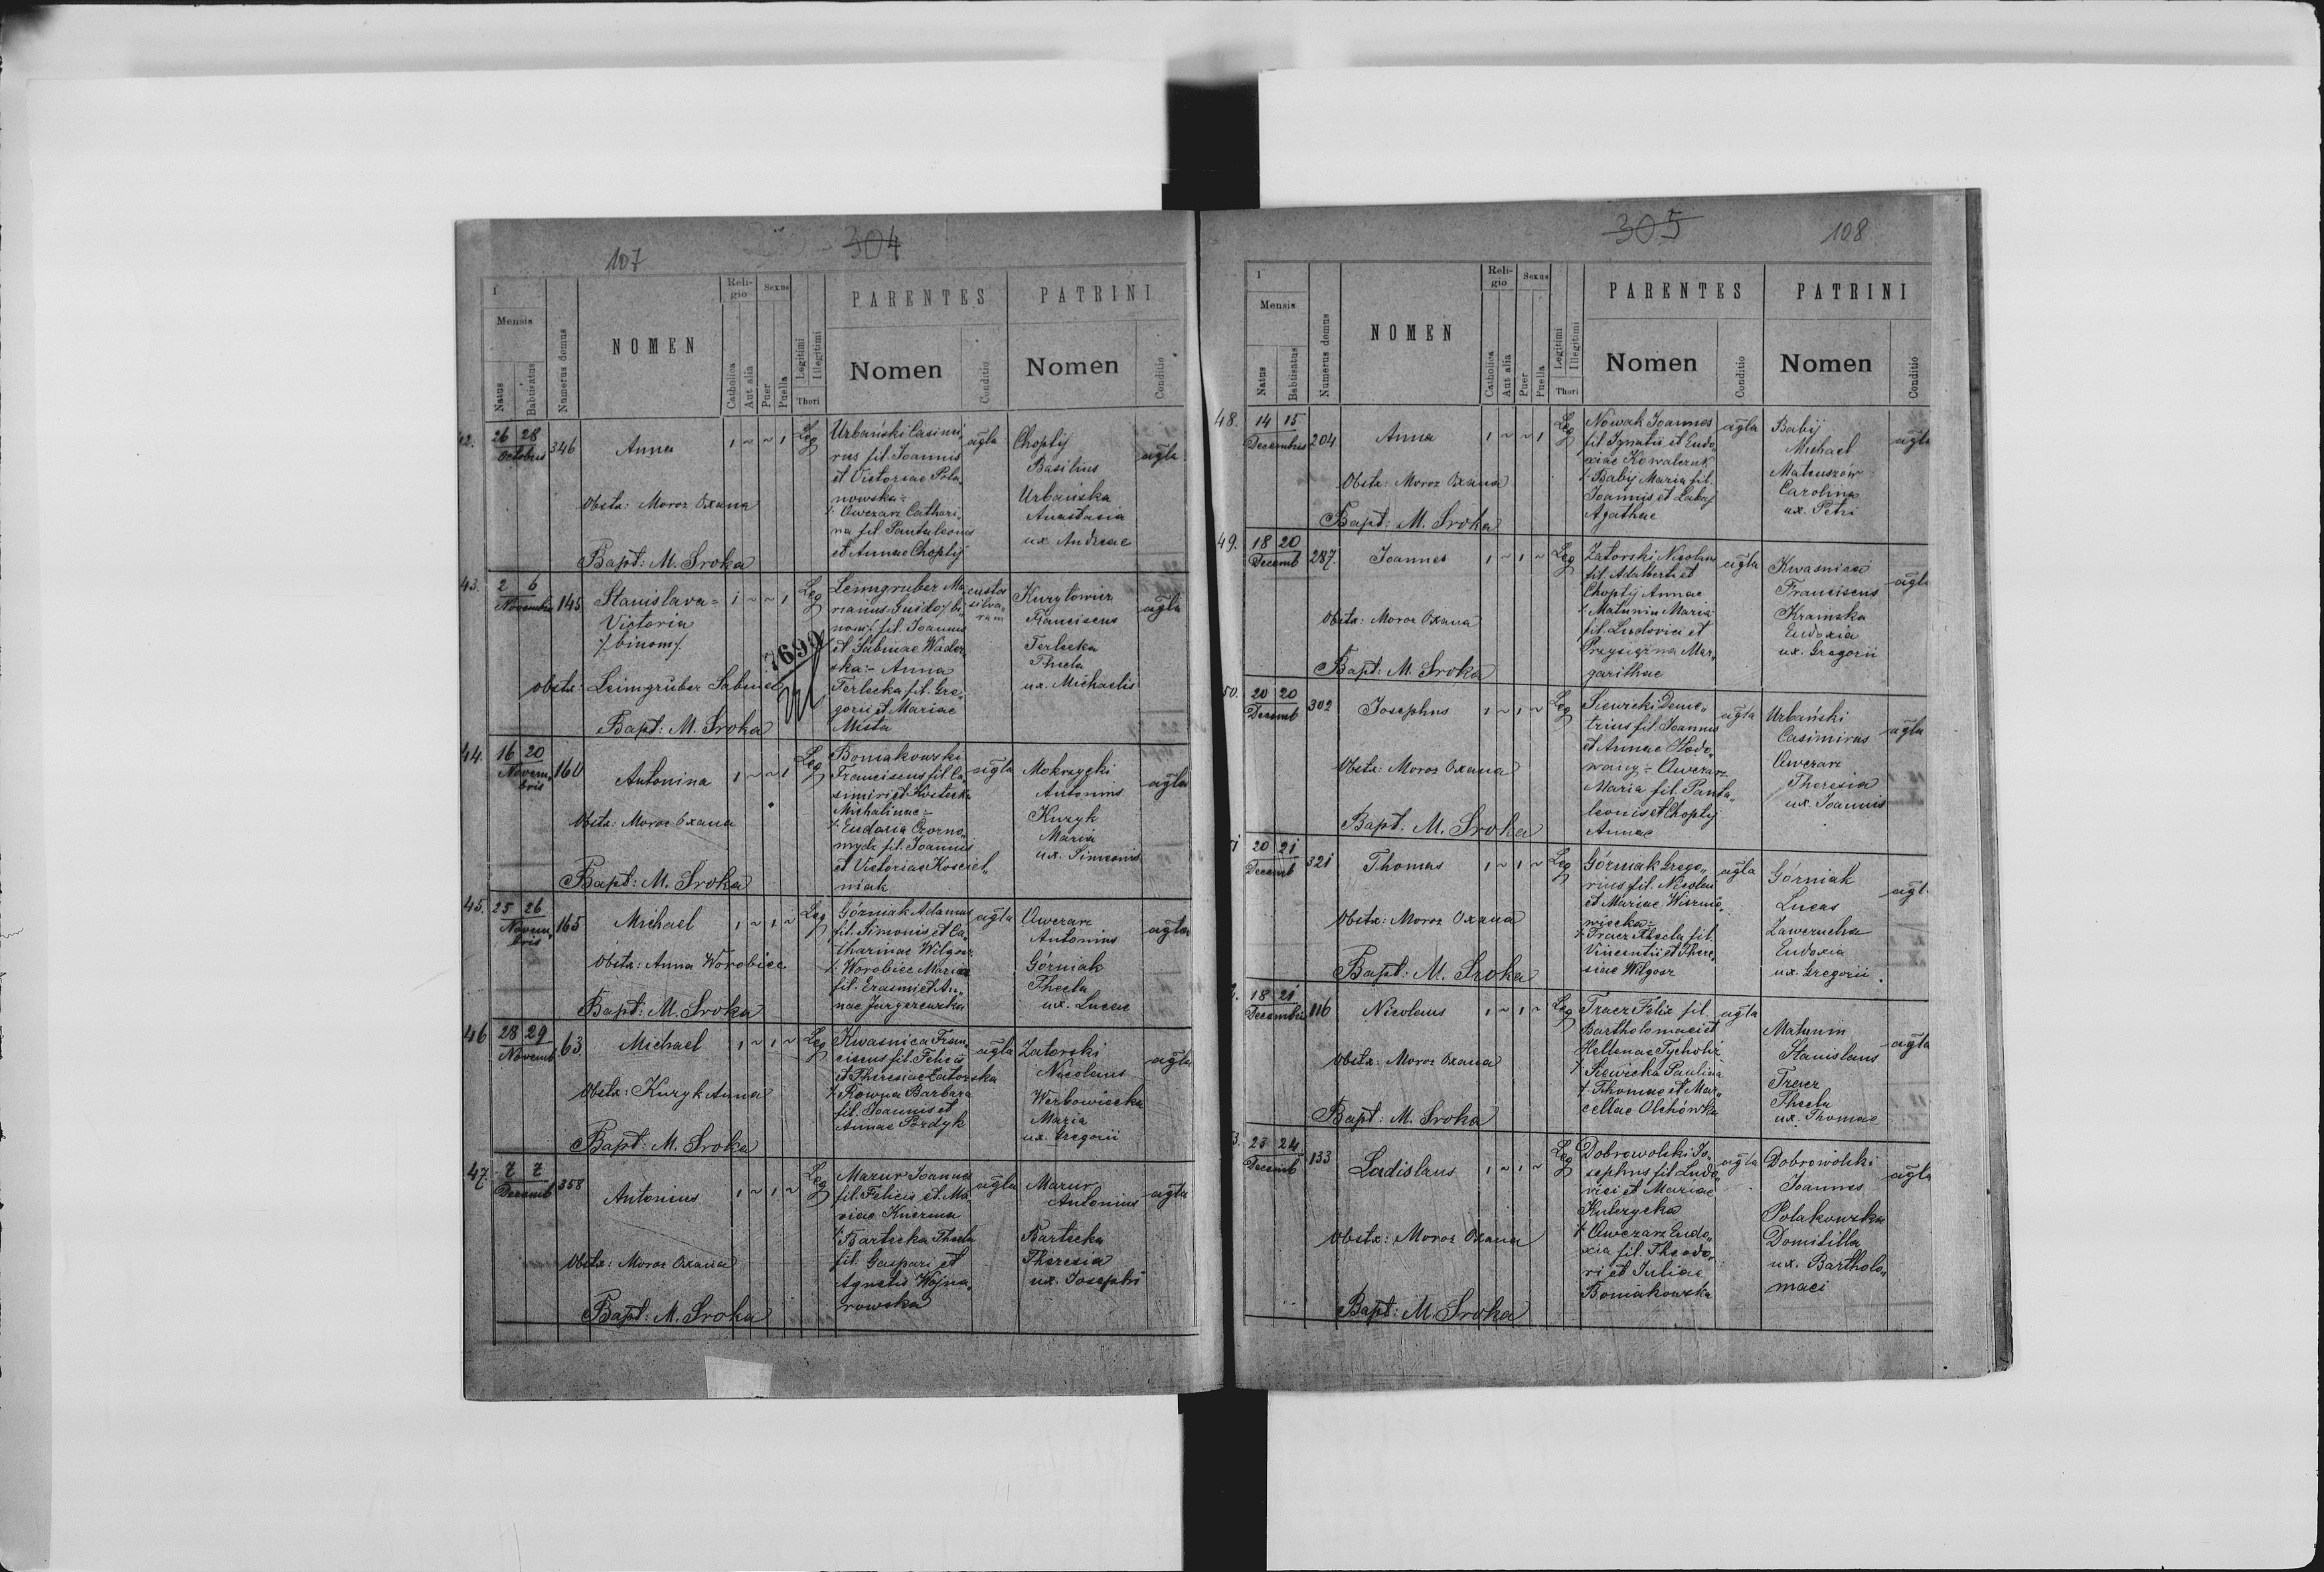 107
304
1
Mensis
Natus
Babtisatus
Numerus domus
NOMEN
Reli-
gio
Catholica
Aut alia
Sexus
Puer
Puella
Legitimi
Illegitimi
Thori
PARENTES
Nomen
Conditio
PATRINI
Nomen
Conditio
42.
26 28
Octobris
346
Anna
1 ~ ~ 1
Leg
Obstx: Moroz Oxana
Bapt: M. Sroka
Urbański Casimi„
rus fil. Joannis
et Victoriae Pola„
nowska÷
/: Owczarz Cathari„
na fil Pantaleonis
et Annae Choptij
agla
Choptij
Basilius
Urbańska
Anastasia
ux Andreae
agla
43.
2 6
Novembr
145
Stanislava=
Victoria
/binom/.
1 ~ ~ 1
Leg
7699
obstx: Leimgruber Sabina
Bapt: M. Sroka
Leimgruber Ma„
rianus-Guido/bi„
nom/. fil. Joannis
et Sabinae
ska÷ Anna
Terlecka fil. Gre„
gorii et Mariae
Msta
custos
silva„
rum
Kurylowicz
Franciscus
Terlecka
Thecla
ux. Michaelis
agla
44.
16 20
Novem„
bris
160
Antonina
1 ~ ~ 1
Leg
Obstx: Moroz Oxana
Bapt: M. Sroka
Boniakowski
Franciscus fil. Ca„
simiri et Kostecka
Michalinae÷
/: Eudoxia Czorno„
mydz fil. Joannis
et Victoriae Kosciel„
niak
agla
Mokrzycki
Antonius
Kuzyk
Maria
ux. Simeonis
agla
45.
25 26
Novem„
bris
165
Michael
1 ~ 1 ~
Leg
Obstx: Anna Worobiec
Bapt: M. Sroka
Górniak Adamus
fil. Simonis et Ca„
tharinae Wilgosz
/: Worobiec Maria
fil. Erasmi et An„
nae Jurgezewska
agla
Owczarz
Antonius
Górniak
Thecla
ux. Lucae
agla
46
28 29
Novemb
63
Michael
1 ~ 1 ~
Leg
Obstx: Kuzyk Anna
Bapt: M. Sroka
Kwasnica Fran„
ciscus fil. Felicis
et Theresiae Zatorska
/: Rowna Barbara
fil. Joannis et
Annae Pozdyk
agla
Zatorski
Nicolaus
Werbowiecka
Maria
ux. Gregorii
agla
47.
7 7
Decemb
358
Antonius
1 ~ 1 ~
Leg
Obstx: Moroz Oxana
Bapt: M. Sroka
Mazur Joannes
fil. Felicis et Ma„
riae Kuczma
/: Bartecka Thecla
fil. Gaspari et
Agnetis Wojna„
rowska
agla
Mazur
Antonius
Bartecka
Theresia
ux. Josephi
agla
305
108
1
Mensis
Natus
Babtisatus
Numerus domus
NOMEN
Reli-
gio
Catholica
Aut alia
Sexus
Puer
Puella
Legitimi
Illegitimi
Thori
PARENTES
Nomen
Conditio
PATRINI
Nomen
Conditio
48.
14 15
Decembris
204
Anna
1 ~ ~ 1
Leg
Obstx: Moroz Oxana
Bapt: M. Sroka
Nowak Joannes
fil Ignatii et Eudo„
xiae Kowalczuk
/: Babij Maria fil.
Joannis et Labaj
Agathae
agla
Babij
Michael
Mateuszów
Carolina
ux. Petri
agla
49.
18 20
Decemb
287.
Joannes
1 ~ 1 ~
Leg
Obstx: Moroz Oxana
Bapt: M. Sroka
Zatorski Nicolaus
fil. Adalberti et
Choptij Annae
/: Matunin Maria
fil. Ludovici et
Przysiężna Mar„
garithae
agla
Kwasnica
Franciscus
Krainska
Eudoxia
ux. Gregorii
agla
50.
20 20
Decemb
302
Josephus
1 ~ 1 ~
Leg
Obstx: Moroz Oxana
Bapt: M. Sroka
Siewicki Deme„
trius fil. Joannis
et Annae Hodo„
wany÷ Owczarz
Maria fil. Panta„
leonis et Choptij
Annae
agla
Urbański
Casimirus
Owczarz
Theresia
ux. Joannis
agla
51
20 21
Decemb
321
Thomas
1 ~ 1 ~
Leg
Obstx: Moroz Oxana
Bapt: M. Sroka
Górniak Grego„
rius fil. Nicolai
et Mariae Wisznio„
wiecka÷
/: Tracz Thecla fil.
Vincentii et There„
siae Wilgosz
agla
Górniak
Lucas
Zawerucha
Eudoxia
ux. Gregorii
agl.
18 21
Decembris
116
Nicolaus
1 ~ 1 ~
Leg
Obstx: Moroz Oxana
Bapt: M. Sroka
Tracz Felix fil.
Bartholomaei et
Hellenae Tycholiz
/: Siewicka Paulina
f. Thomae et Mar„
cellae Olchówka
agla
Matunin
Stanislaus
Tracz
Thecla
ux. Thomae
agla
3.
23 24
Decemb
133
Ladislaus
1 ~ 1 ~
Leg
Obstx: Moroz Oxana
Bapt: M. Sroka
Dobrowolski Jo„
sephus fil. Ludo„
vici et Mariae
Kulczycka
/: Owczarz Eudo„
xia fil. Theodo„
ri et Juliae
Boniakowska
agla
Dobrowolski
Joannes
Polakowska
Domitilla
ux. Bartholo„
maei
agla